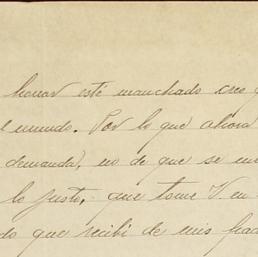 honor esté manchado creo
el mundo. Por lo que ahora
demanda, no de que se
lo justo, que tome V. en
do que recibí de mis